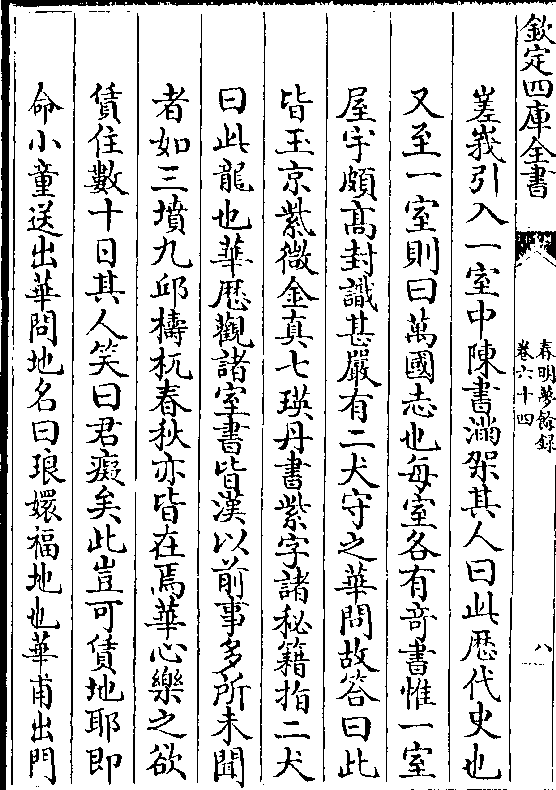 欽定四庫全書
春明夢餘錄
卷六十四
八
嵳峩引入一室中陳書滿架其人曰此歴代史也
又至一室則曰萬國志也每室各有竒書惟一室
屋宇頗髙封識甚嚴有二犬守之華問故答曰此
皆玉京紫微金真七瑛丹書紫字諸秘籍指二犬
曰此龍也華歴觀諸室書皆漢以前事多所未聞
者如三墳九邱檮杌春秋亦皆在焉華心樂之欲
賃住數十日其人笑曰君癡矣此豈可賃地耶即
命小童送出華問地名曰琅嬛福地也華甫出門